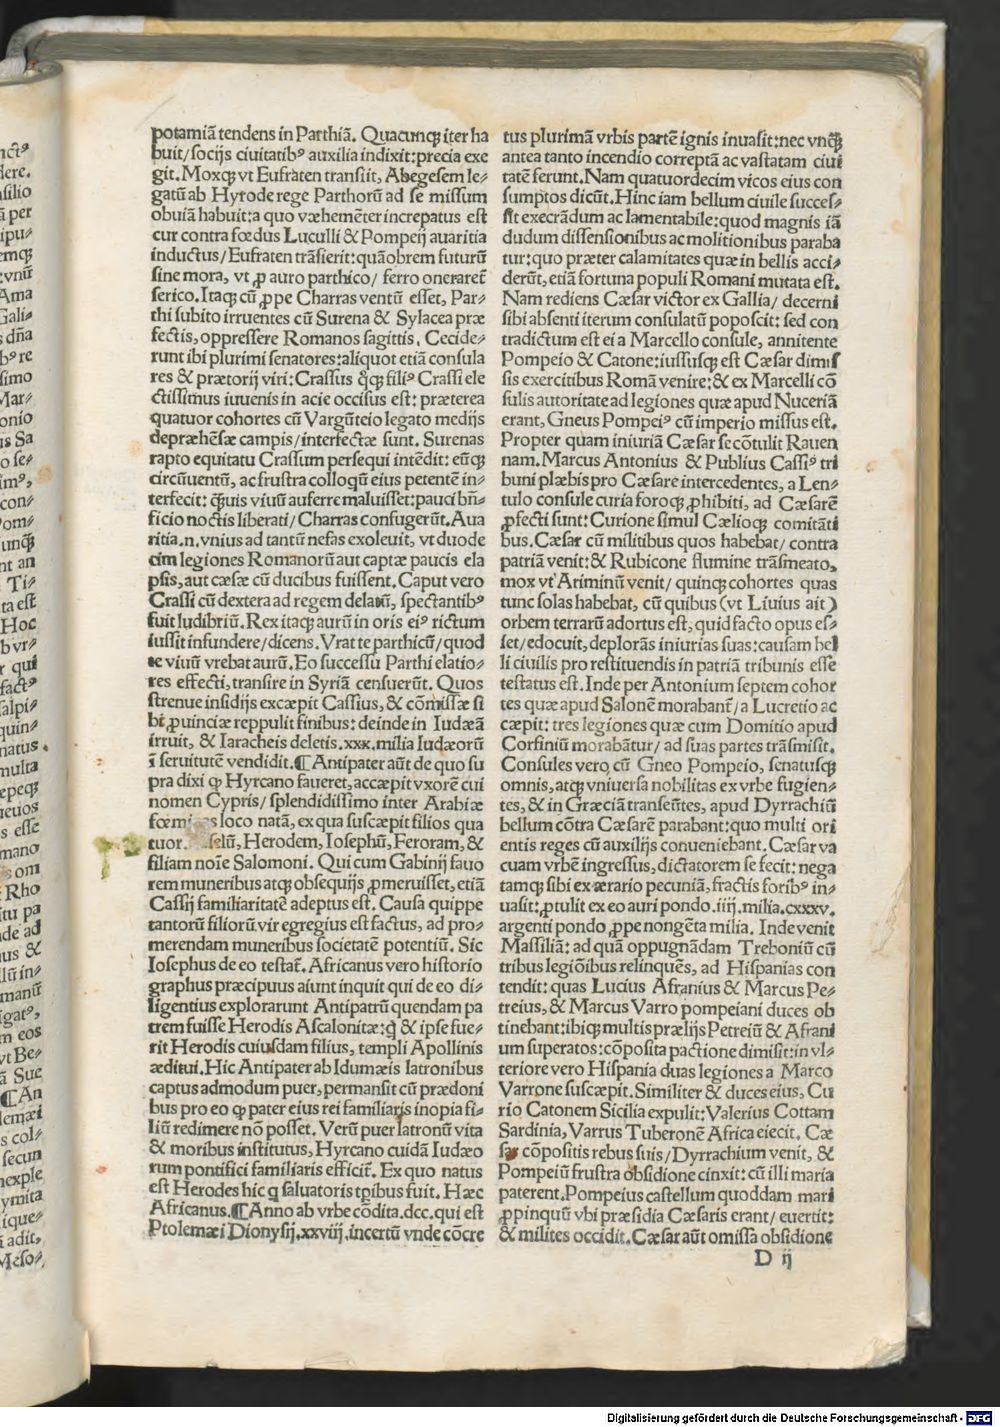 potamiã tendens in Parthiã. Quacunqꝫ iter ha
buit/socijs ciuitatibꝰ auxilia indixit:precia exe
git. Moxqꝫ vt Eufraten transiit, Abegesem le⸗
gatũ ab Hyrode rege Parthorũ ad se missum
obuiã habuit:a quo væhemẽter increpatus est
cur contra fœdus Luculli & Pompeij auaritia
inductus/Eufraten trãsierit:quãobrem futurũ
sine mora, vt ꝓ auro parthico/ ferro oneraret̃
serico. Itaqꝫ cũ ꝓpe Charras ventũ esset, Par⸗
thi subito irruentes cũ Surena & Sylacea præ
fectis, oppressere Romanos sagittis. Cecide⸗
runt ibi plurimi senatores:aliquot etiã consula
res & prætorij viri:Crassus q̊qꝫ filiꝰ Crassi ele
ctissimus iuuenis in acie occisus est: præterea
quatuor cohortes cũ Vargũteio legato medijs
depræhẽsæ campis/interfectæ sunt. Surenas
rapto equitatu Crassum persequi intẽdit: eũqꝫ
circũuentũ, ac frustra colloqũ eius petentẽ in⸗
terfecit: q̃uis viuũ auferre maluisset:pauci bñ⸗
ficio noctis liberati/ Charras confugerũt. Aua
ritia.n. vnius ad tantũ nefas exoleuit, vt duode
cim legiones Romanorũ aut captæ paucis ela
psis, aut cæsæ cũ ducibus fuissent. Caput vero
Crassi cũ dextera ad regem delatũ, spectantibꝰ
fuit ludibriũ. Rex itaqꝫ aurũ in oris eiꝰ rictum
iussit infundere/dicens. Vrat te parthicũ/quod
te viuũ vrebat aurũ. Eo successu Parthi elatio⸗
res effecti, transire in Syriã censuerũt. Quos
strenue insidijs excæpit Cassius, & cõmissæ si
bi ꝓuinciæ reppulit finibus: deinde in Iudæã
irruit, & Iaracheis deletis.xxx.milia Iudæorũ
ĩ seruitutẽ vendidit.¶ Antipater aũt de quo su
pra dixi ꝙ Hyrcano faueret, accæpit vxorẽ cui
nomen Cypris/splendidissimo inter Arabiæ
loco natã, ex qua suscæpit filios qua
tuor. Herodem, Iosephũ, Feroram, &
filiam noĩe Salomoni. Qui cum Gabinij fauo
rem muneribus atqꝫ obsequijs ꝓmeruisset, etiã
Cassij familiaritatẽ adeptus est. Causa quippe
tantorũ filiorũ vir egregius est factus, ad pro⸗
merendam muneribus societatẽ potentiũ. Sic
Iosephus de eo testat̃. Africanus vero historio
graphus præcipuus aiunt inquit qui de eo di⸗
ligentius explorarunt Antipatrũ quendam pa
trem fuisse Herodis Ascalonitæ:q̃ & ipse fue⸗
rit Herodis cuiusdam filius, templi Apollinis
æditui. Hic Antipater ab Idumæis latronibus
captus admodum puer, permansit cũ prædoni
bus pro eo ꝙ pater eius rei familiaris inopia fi⸗
liũ redimere nõ posset. Verũ puer latronũ vita
& moribus institutus, Hyrcano cuidã Iudæo
rum pontifici familiaris efficit̃. Ex quo natus
est Herodes hic q̃ saluatoris tp̃ibus fuit. Hæc
Africanus.¶Anno ab vrbe cõdita.dcc.qui est
Ptolemæi Dionysij.xxviij.incertũ vnde cõcre
tus plurimã vrbis partẽ ignis inuasit:nec vnq̃ꝫ
antea tanto incendio correptã ac vastatam ciui
tatẽ ferunt. Nam quatuordecim vicos eius con
sumptos dicũt. Hinc iam bellum ciuile succes⸗
sit execrãdum ac lamentabile: quod magnis iã
dudum dissensionibus ac molitionibus paraba
tur:quo præter calamitates quæ in bellis acci⸗
derũt, etiã fortuna populi Romani mutata est.
Nam rediens Cæsar victor ex Gallia/ decerni
sibi absenti iterum consulatũ poposcit: sed con
tradictum est ei a Marcello consule, annitente
Pompeio & Catone:iussusqꝫ est Cæsar dimis
sis exercitibus Romã venire:& ex Marcelli cõ
sulis autoritate ad legiones quæ apud Nuceriã
erant, Gneus Pompeiꝰ cũ imperio missus est.
Propter quam iniuriã Cæsar se cõtulit Rauen
nam. Marcus Antonius & Publius Cassiꝰ tri
buni plæbis pro Cæsare intercedentes, a Len⸗
tulo consule curia foroqꝫ ꝓhibiti, ad Cæsarẽ
ꝓfecti sunt: Curione simul Cælioqꝫ comitãti
bus. Cæsar cũ militibus quos habebat/ contra
patriã venit:& Rubicone flumine trãsmeato,
mox vt Ariminũ venit/ quinqꝫ cohortes quas
tunc solas habebat, cũ quibus (vt Liuius ait)
orbem terrarũ adortus est, quid facto opus es⸗
set/edocuit, deplorãs iniurias suas:causam bel
li ciuilis pro restituendis in patriã tribunis esse
testatus est. Inde per Antonium septem cohor
tes quæ apud Salonẽ morabant̃/a Lucretio ac
cæpit: tres legiones quæ cum Domitio apud
Corfiniũ morabãtur/ ad suas partes trãsmisit.
Consules vero cũ Gneo Pompeio, senatusqꝫ
omnis, atqꝫ vniuersa nobilitas ex vrbe fugien⸗
tes, & in Græciã transeũtes, apud Dyrrachiũ
bellum cõtra Cæsarẽ parabant:quo multi ori
entis reges cũ auxilijs conueniebant. Cæsar va
cuam vrbẽ ingressus, dictatorem se fecit: nega
tamqꝫ sibi ex ærario pecuniã, fractis foribꝰ in⸗
uasit: ꝓtulit ex eo auri pondo.iiij.milia.cxxxv.
argenti pondo ꝓpe nongẽta milia. Inde venit
Massiliã: ad quã oppugnãdam Treboniũ cũ
tribus legiõibus relinquẽs, ad Hispanias con
tendit: quas Lucius Afranius & Marcus Pe⸗
treius, & Marcus Varro pompeiani duces ob
tinebant:ibiqꝫ multis prælijs Petreiũ & Afrani
um superatos:cõposita pactione dimisit:in vl⸗
teriore vero Hispania duas legiones a Marco
Varrone suscæpit. Similiter & duces eius, Cu
rio Catonem Sicilia expulit: Valerius Cottam
Sardinia, Varrus Tuberonẽ Africa eiecit. Cæ
sar cõpositis rebus suis/Dyrrachium venit, &
Pompeiũ frustra obsidione cinxit: cũ illi maria
paterent. Pompeius castellum quoddam mari
ꝓpinquũ vbi præsidia Cæsaris erant/ euertit:
& milites occidit. Cæsar aũt omissa obsidione
D ij
Digitalisierung gefördert durch die Deutsche Forschungsgemeinschaft - DFG